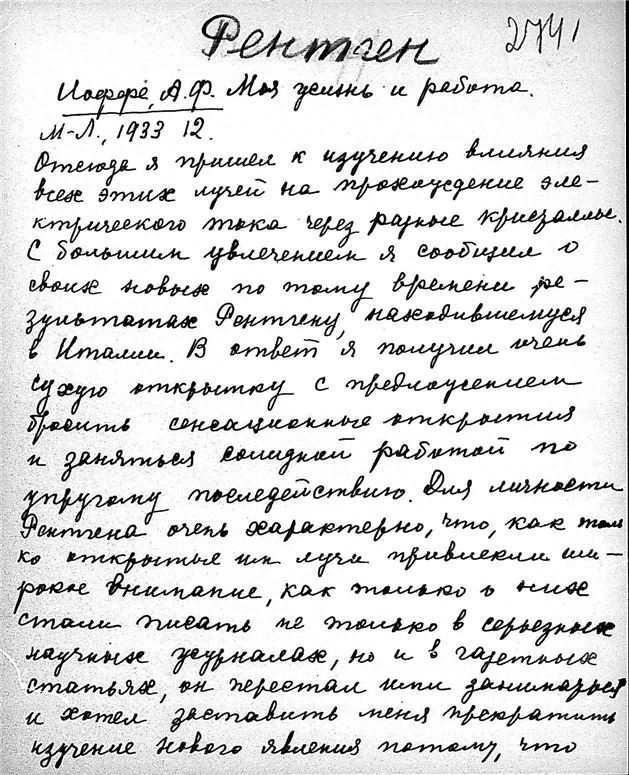 Рентген 2741
Иоффе, А.Ф. Моя жизнь и работа.
М-Л., 1933 12.
Отсюда я пришел к изучению влияния
всех этих лучей на прохождение эле-
ктрического тока через разные кристаллы.
С большим увлечением я сообщил о
своих новых по тому времени ре-
зультатах Рентгену, находившемуся
в Италии. В ответ я получил очень
сухую открытку с предложением
бросить сенсационные открытия
и заняться солидной работой по
упругому последействию. Для личности
Рентгена очень характерно, что, как толь
ко открытые им лучи привлекли ши-
рокое внимание, как только о них
стали писать не только в серьезных
научных журналах, но и в газетных
статьях, он перестал ими заниматься
и хотел заставить меня прекратить
изучение нового явления потому, что